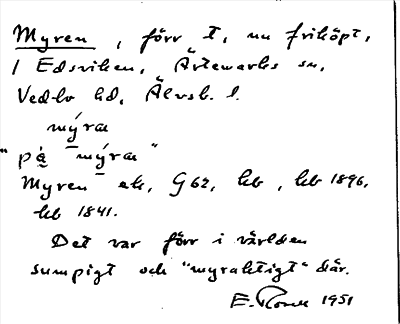 Myren, förr t, nu friköpt,
i Edsviken, Ärtemarks sn,
Vedbo hd, Älvsb. l.
mýra
"på mýra"
Myren ek, G 62, kb, kb 1896,
kb 1841.
Det var förr i världen
sumpigt och "myraktigt" där.
E. 1951